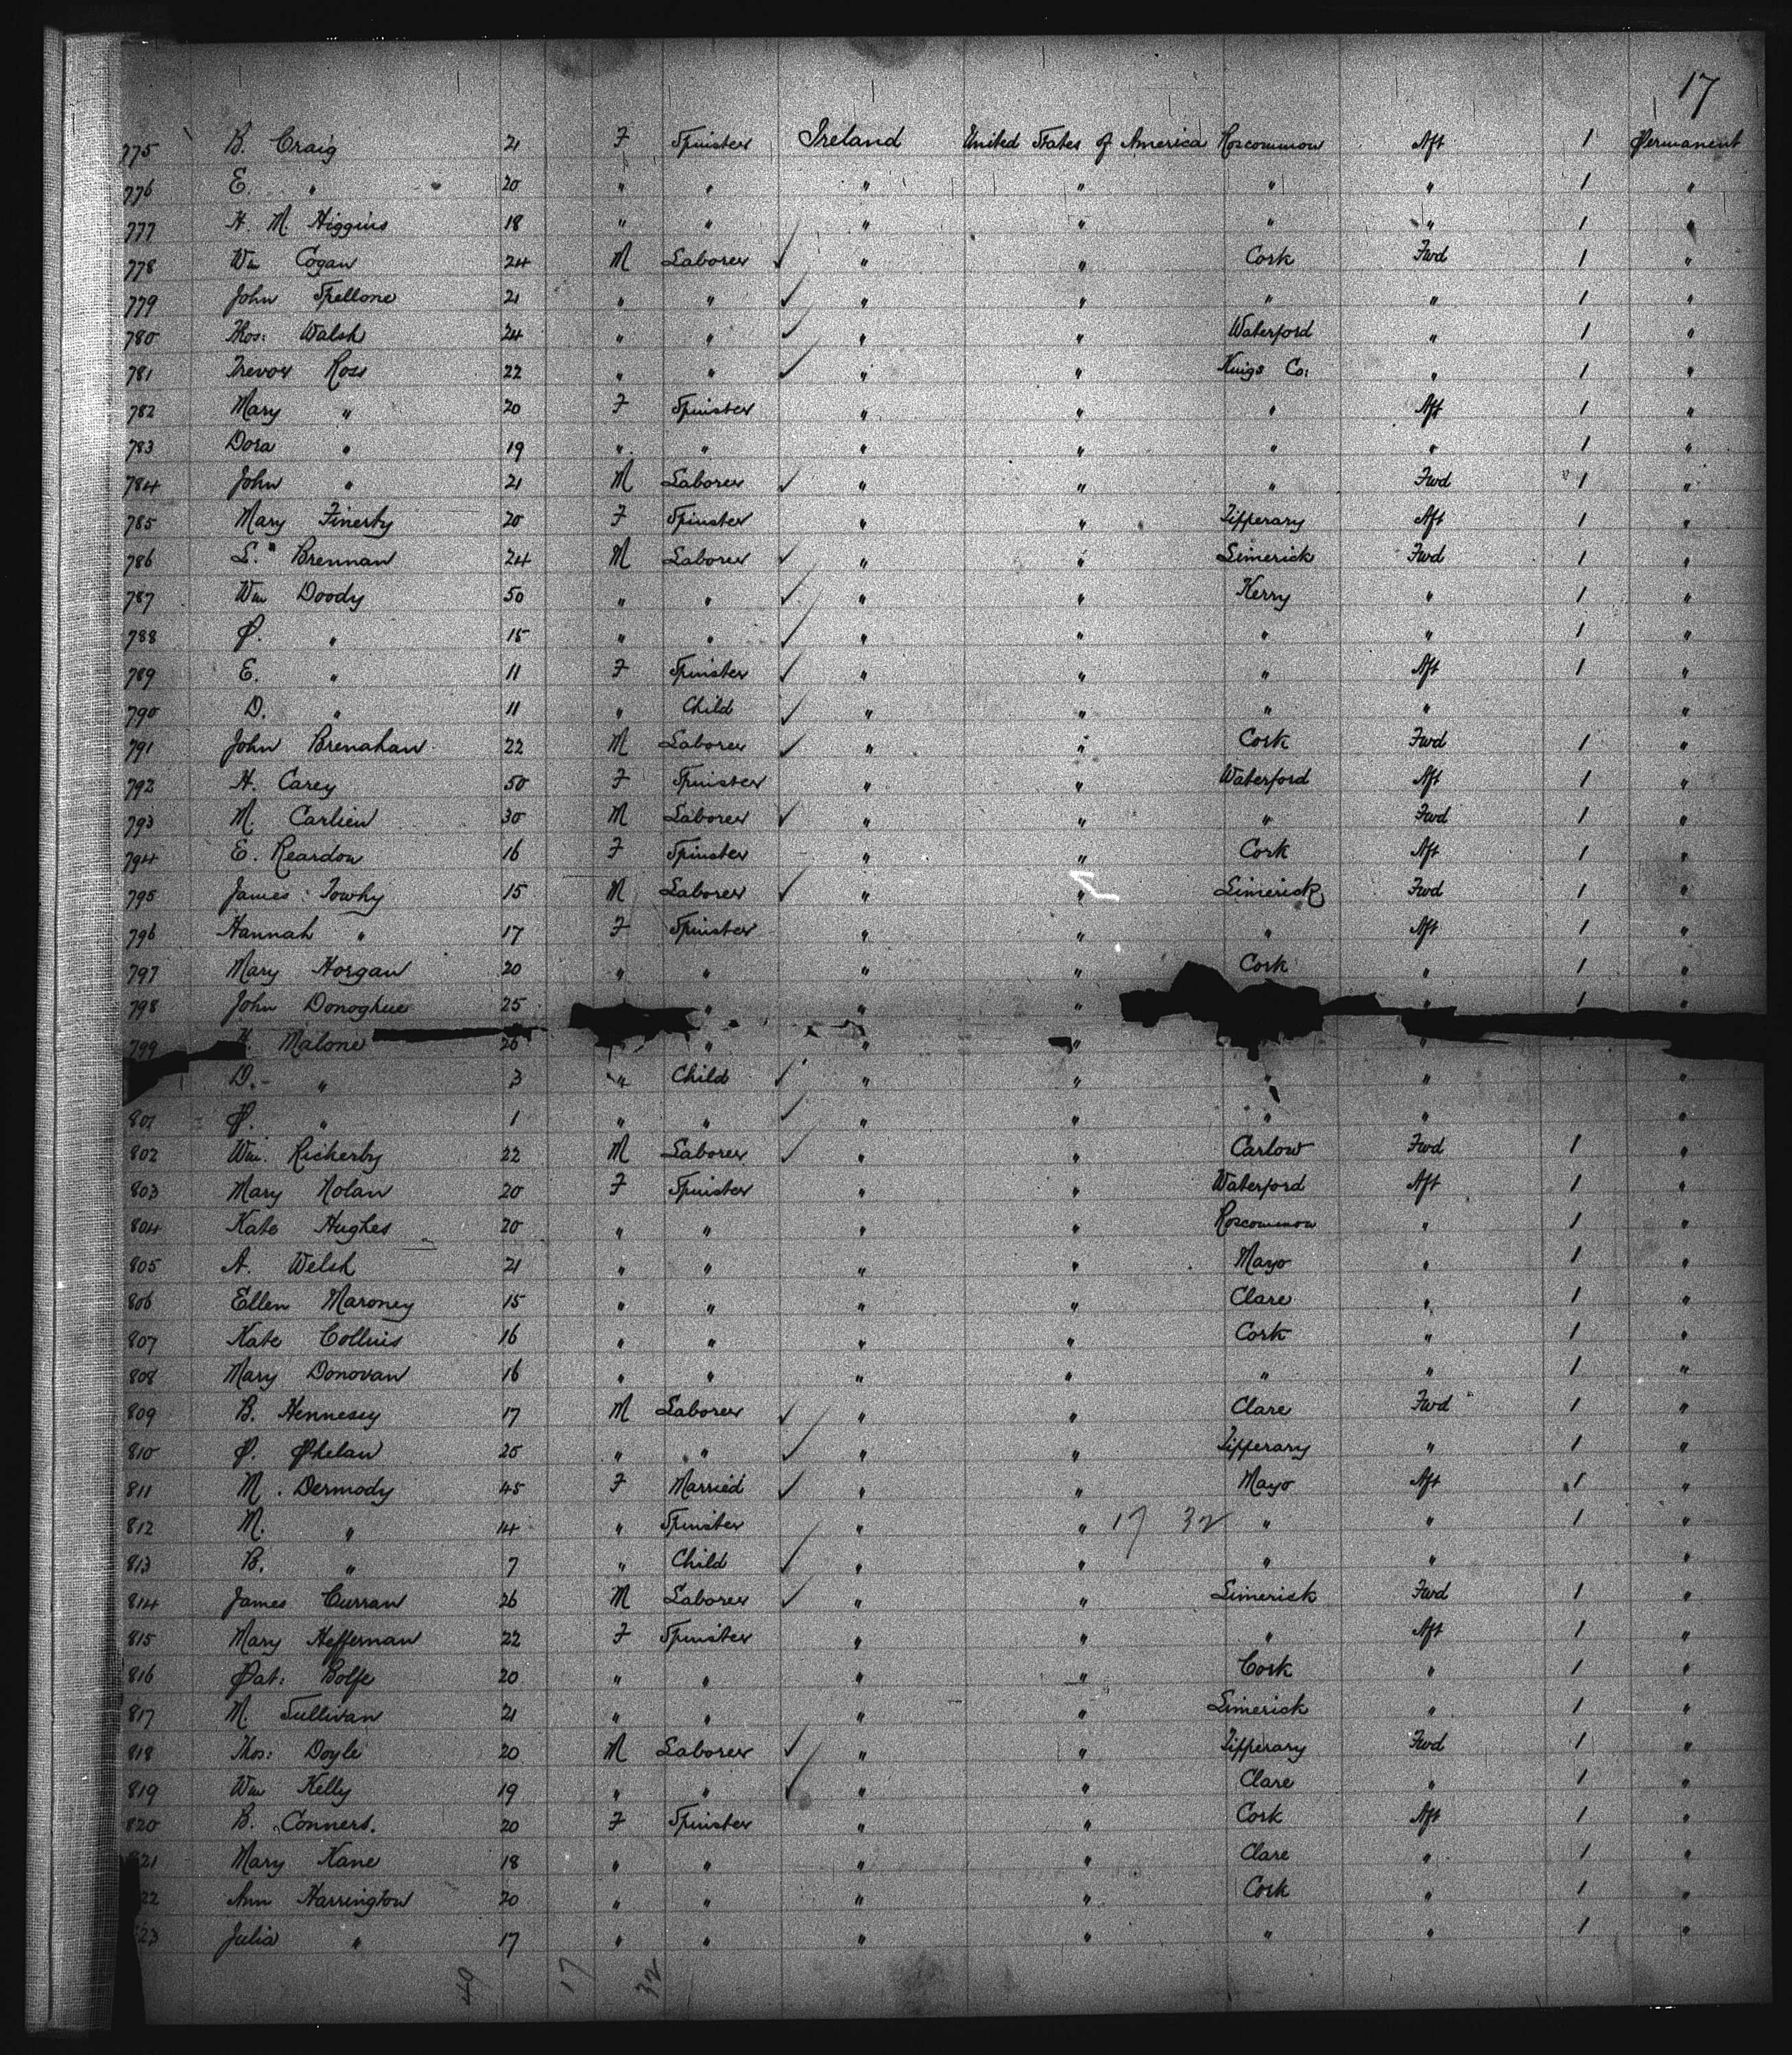 17
775 B. Craig 21 F Spinster Ireland United States of America Roscommon Aft 1 Permanent
776 E. " 20 " " " " " " 1 "
777 H. M. Higgins 18 " " " " " " 1 "
778 Wm Cogan 24 M Laborer ✓ " " Cork Fwd 1 "
779 John Spellone 21 " " ✓ " " " " 1 "
780 Thos: Walsh 24 " " ✓ " " Waterford " 1 "
781 Trevor Ross 22 " " ✓ " " Kings Co: " 1 "
782 Mary " 20 F Spinster " " " Aft 1 "
783 Dora " 19 " " " " " " 1 "
784 John " 21 M Laborer ✓ " " " Fwd 1 "
785 Mary Finerty 20 F Spinster " " Tipperary Aft 1 "
786 L. Brennan 24 M Laborer ✓ " " Limerick Fwd 1 "
787 Wm Doody 50 " " ✓ " " Kerry " 1 "
788 P. " 15 " " ✓ " " " " 1 "
789 E. " 11 F Spinster ✓ " " " Aft 1 "
790 D. " 11 " Child ✓ " " " " "
791 John Brenahan 22 M Laborer ✓ " " Cork Fwd 1 "
792 H. Carey 50 F Spinster " " Waterford Aft 1 "
793 M. Carlien 30 M Laborer ✓ " " " Fwd 1 "
794 E. Reardon 16 F Spinster " " Cork Aft 1 "
795 James Towhy 15 M Laborer ✓ " " Limerick Fwd 1 "
796 Hannah " 17 F Spinster " " " Aft 1 "
797 Mary Horgan 20 " " " " Cork " 1 "
798 John Donoghue 25 " " " " 1 "
799 Malone 26 " " " " "
D. " 3 " Child ✓ " " " " "
801 P. " 1 " " ✓ " " " " "
802 Wm. Rickerby 22 M Laborer ✓ " " Carlow Fwd 1 "
803 Mary Nolan 20 F Spinster " " Waterford Aft 1 "
804 Kate Hughes 20 " " " " Roscommon " 1 "
805 A. Welsh 21 " " " " Mayo " 1 "
806 Ellen Maroney 15 " " " " Clare " 1 "
807 Kate Collins 16 " " " " Cork " 1 "
808 Mary Donovan 16 " " " " " " 1 "
809 B. Hennesey 17 M Laborer ✓ " " Clare Fwd 1 "
810 P. Phelan 25 " " ✓ " " Tipperary " 1 "
811 M. Dermody 45 F Married ✓ " " Mayo Aft 1 "
812 M. " 14 " Spinster " " 17 32 " " 1 "
813 B. " 7 " Child ✓ " " " " "
814 James Curran 26 M Laborer ✓ " " Limerick Fwd 1 "
815 Mary Heffernan 22 F Spinster " " " Aft 1 "
816 Pat: Bolfe 20 " " " " Cork " 1 "
817 M. Sullivan 21 " " " " Limerick " 1 "
818 Thos: Doyle 20 M Laborer ✓ " " Tipperary Fwd 1 "
819 Wm Kelly 19 " " ✓ " " Clare " 1 "
820 B. Conners. 20 F Spinster " " Cork Aft 1 "
821 Mary Kane 18 " " " " Clare " 1 "
22 Ann Harrington 20 " " " " Cork " 1 "
23 Julia " 17 " " " " " " 1 "
49 17 32